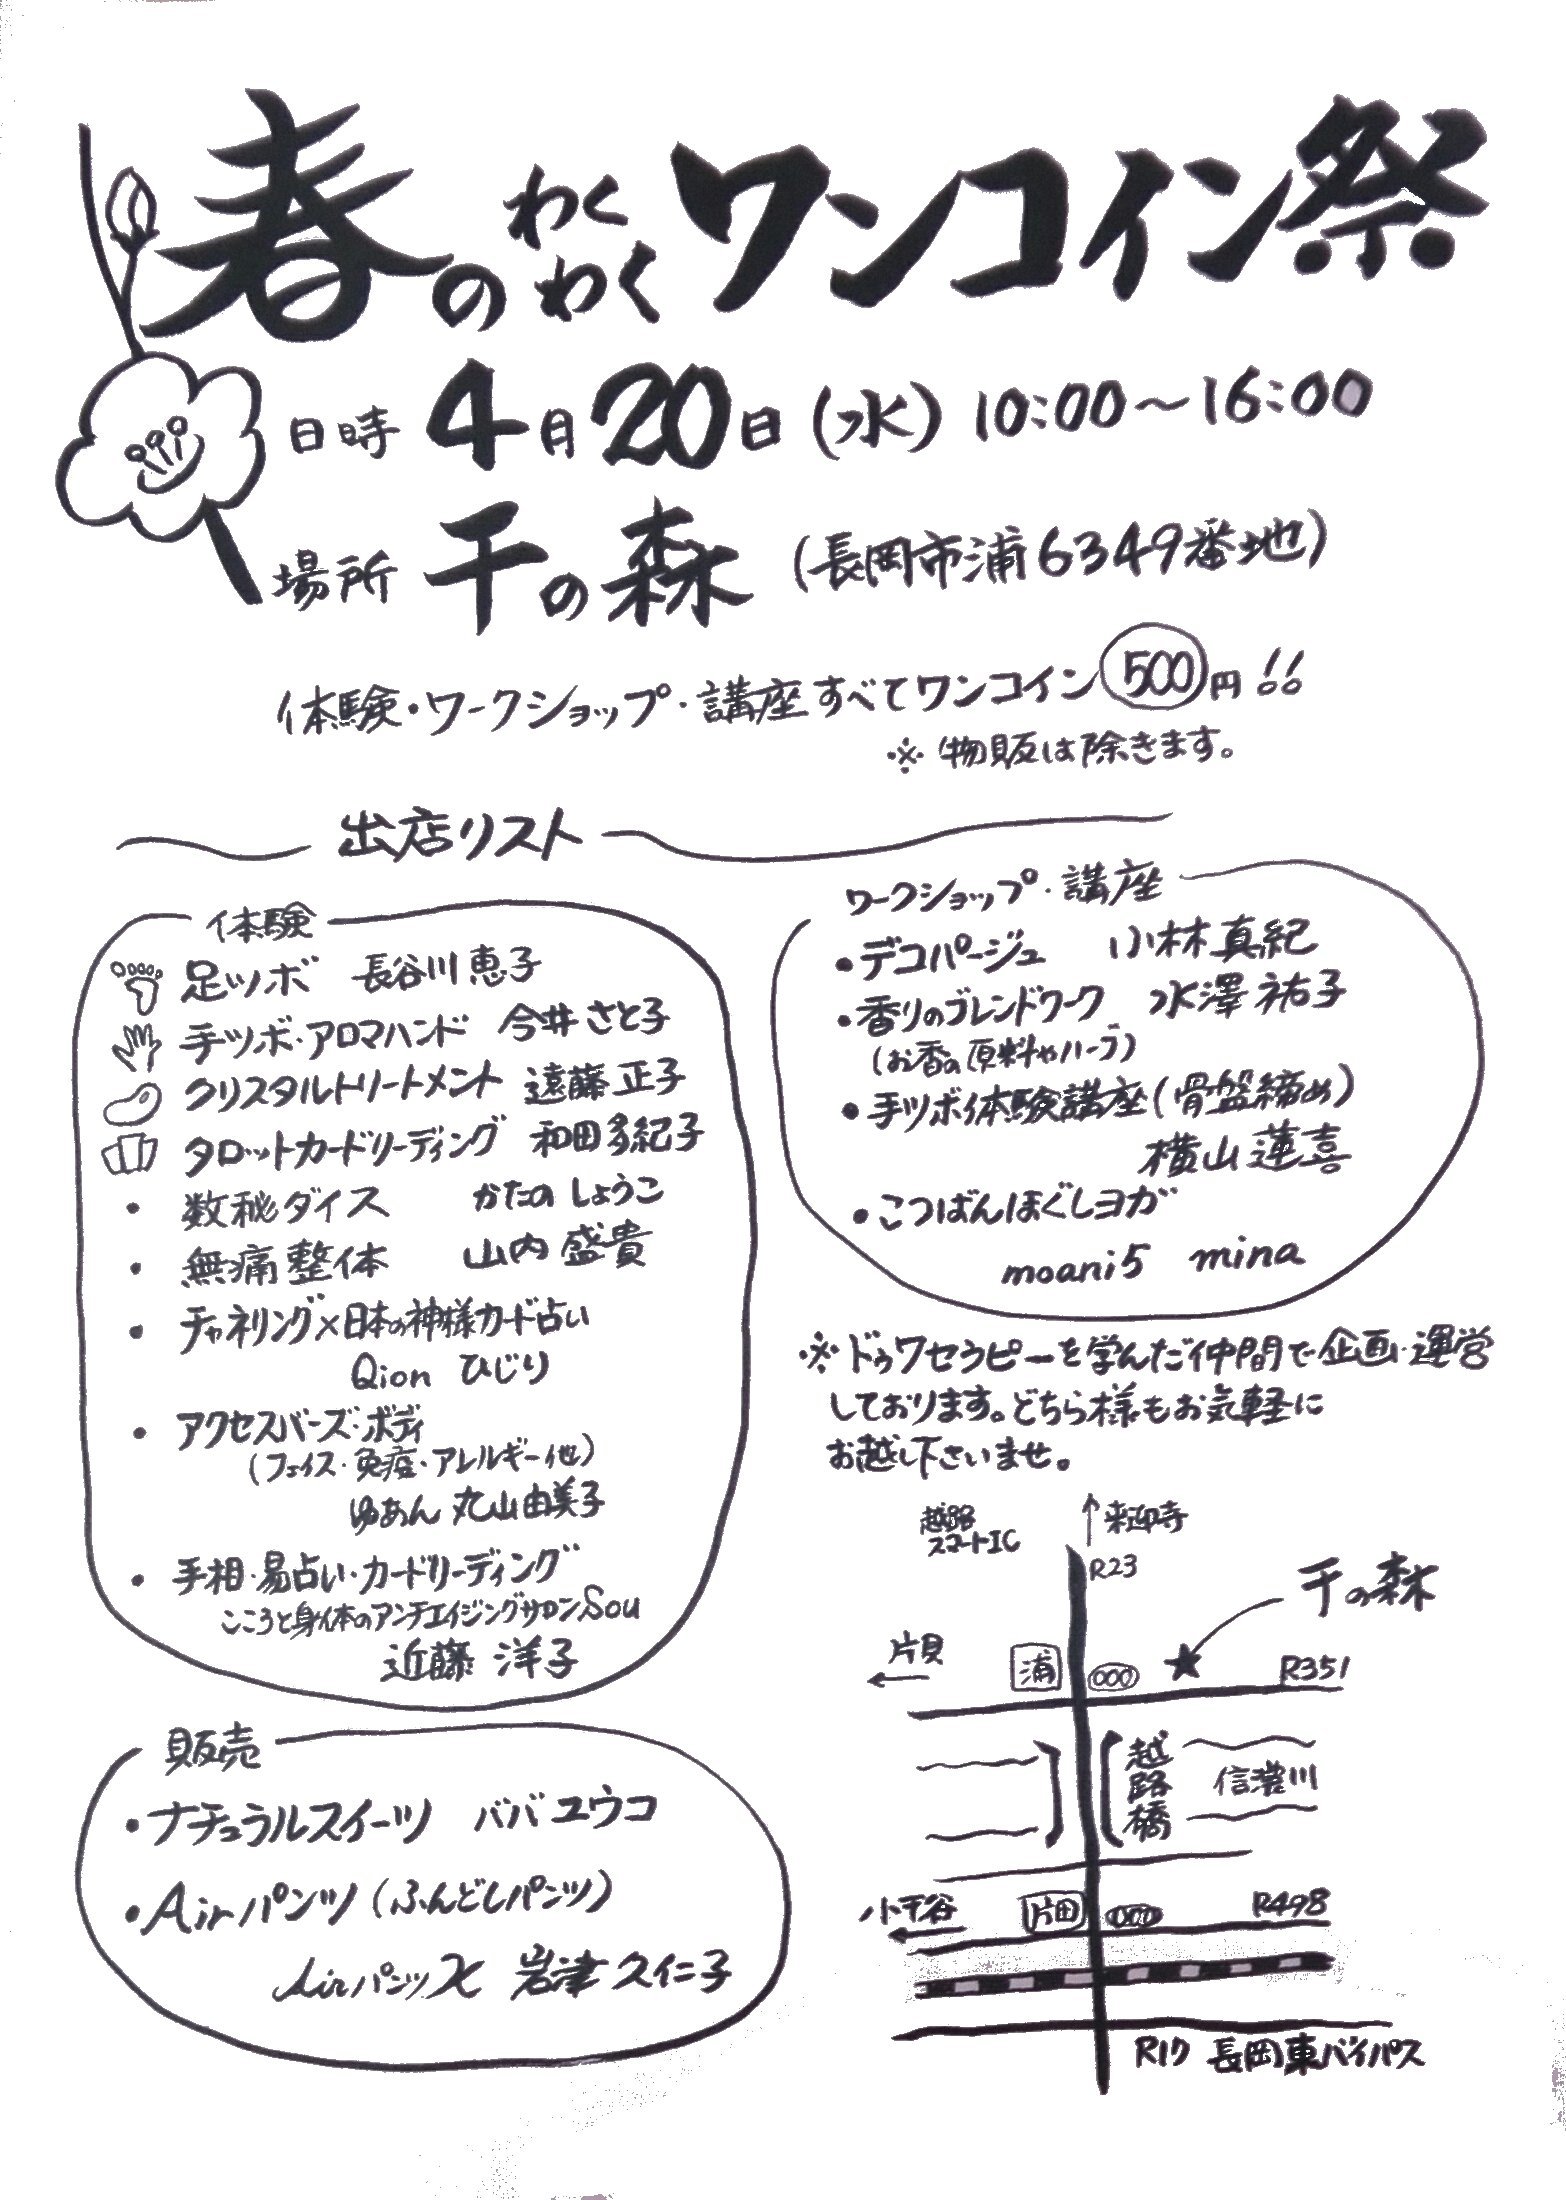 春のわくわくワンコイン祭
日時 4月20日(水) 10:00〜16:00
場所 干の森 (長岡市浦6349番地)
体験・ワークショップ・講座すべてワンコイン500円!!
※物販は除きます。
出店リスト
体験
足ツボ 長谷川恵子
手ツボ・アロマハンド 今井さと子
クリスタルトリートメント 遠藤正子
タロットカードリーディング 和田多紀子
・数秘ダイス かたのしょうこ
・無痛整体 山内盛貴
・チャネリング×日本の神様カード占い
Qion ひじり
・アクセスバーズ・ボディ
(フェイス・免疫・アレルギー他)
ゆあん 丸山由美子
・手相・易占い・カードリーディング
こころと身体のアンチエイジングサロンSou
近藤 洋子
販売
・ナチュラルスイーツ ババユウコ
・Airパンツ(ふんどしパンツ)
Airパンツ 岩津久仁子
ワークショップ・講座
・デコパージュ 小林真紀
・香りのブレンドワーク 水澤祐子
(お香の原料やハーブ)
・手ツボ体験講座(骨盤締め)
横山蓮喜
・こつばんほぐしヨガ
moani5 mina
※ドゥワセラピーを学んだ仲間で企画・運営
しております。どちら様もお気軽に
お越し下さいませ。
越路
スマートIC
↑来迎寺
R23
干の森
←片貝
浦
R351
越路橋
信濃川
小千谷
片田
R498
R17 長岡東バイパス